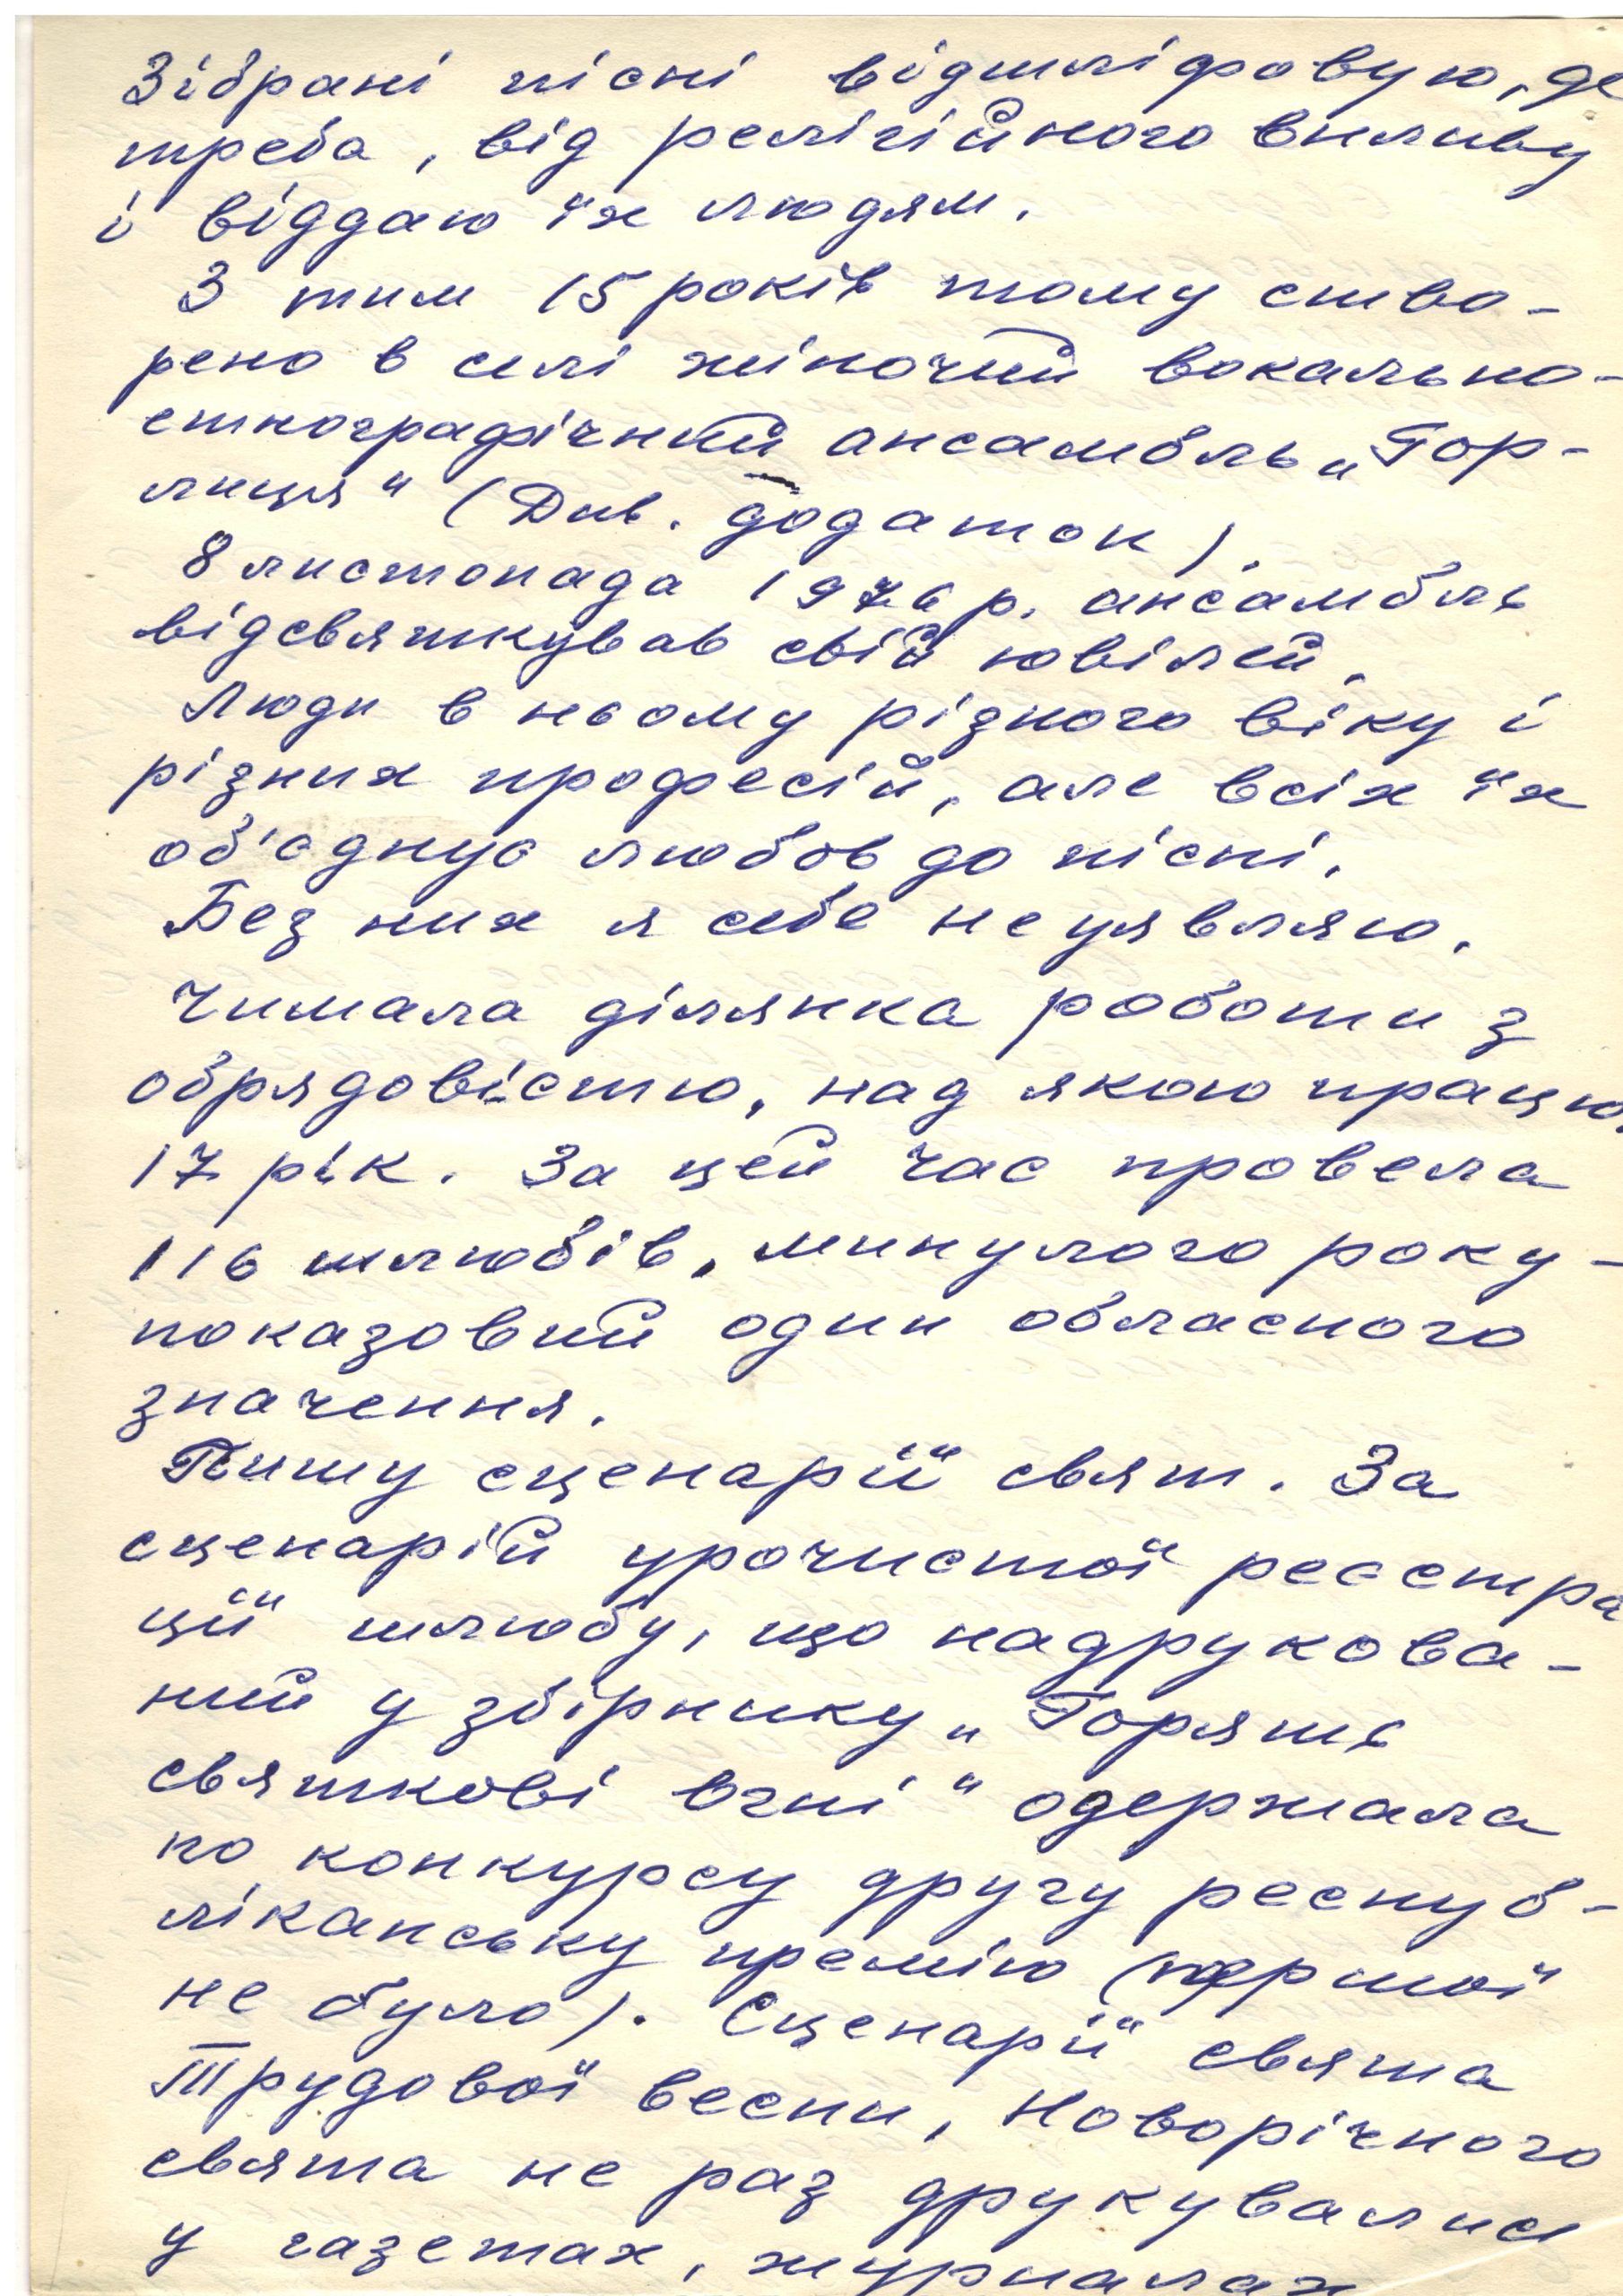 Зібрані пісні відшліфовую, де
треба, від релігійного впливу
і віддаю їх людям.
З тим 15 років тому ство-
рено в селі жіночий вокально-
етнографічний ансамбль „Гор-
лиця" (Див. додаток).
8 листопада 1976 р. ансамбль
відсвяткував свій ювілей.
Люди в ньому різного віку і
різних професій, але всіх їх
об'єднує любов до пісні.
Без них я себе не уявляю.
Чимала ділянка роботи з
обрядовістю, над якою працюю
17 рік. За цей час провела
116 шлюбів, минулого року -
показовий один обласного
значення.
Пишу сценарії свят. За
сценарій урочистої реєстра
ції шлюбу, що надрукова-
ний у збірнику „Горять
святкові вогні" одержала
по конкурсу другу респуб-
ліканську премію (першої
не було). Сценарії свята
Трудової весни, Новорічного
свята не раз друкувались
у газетах, журналах